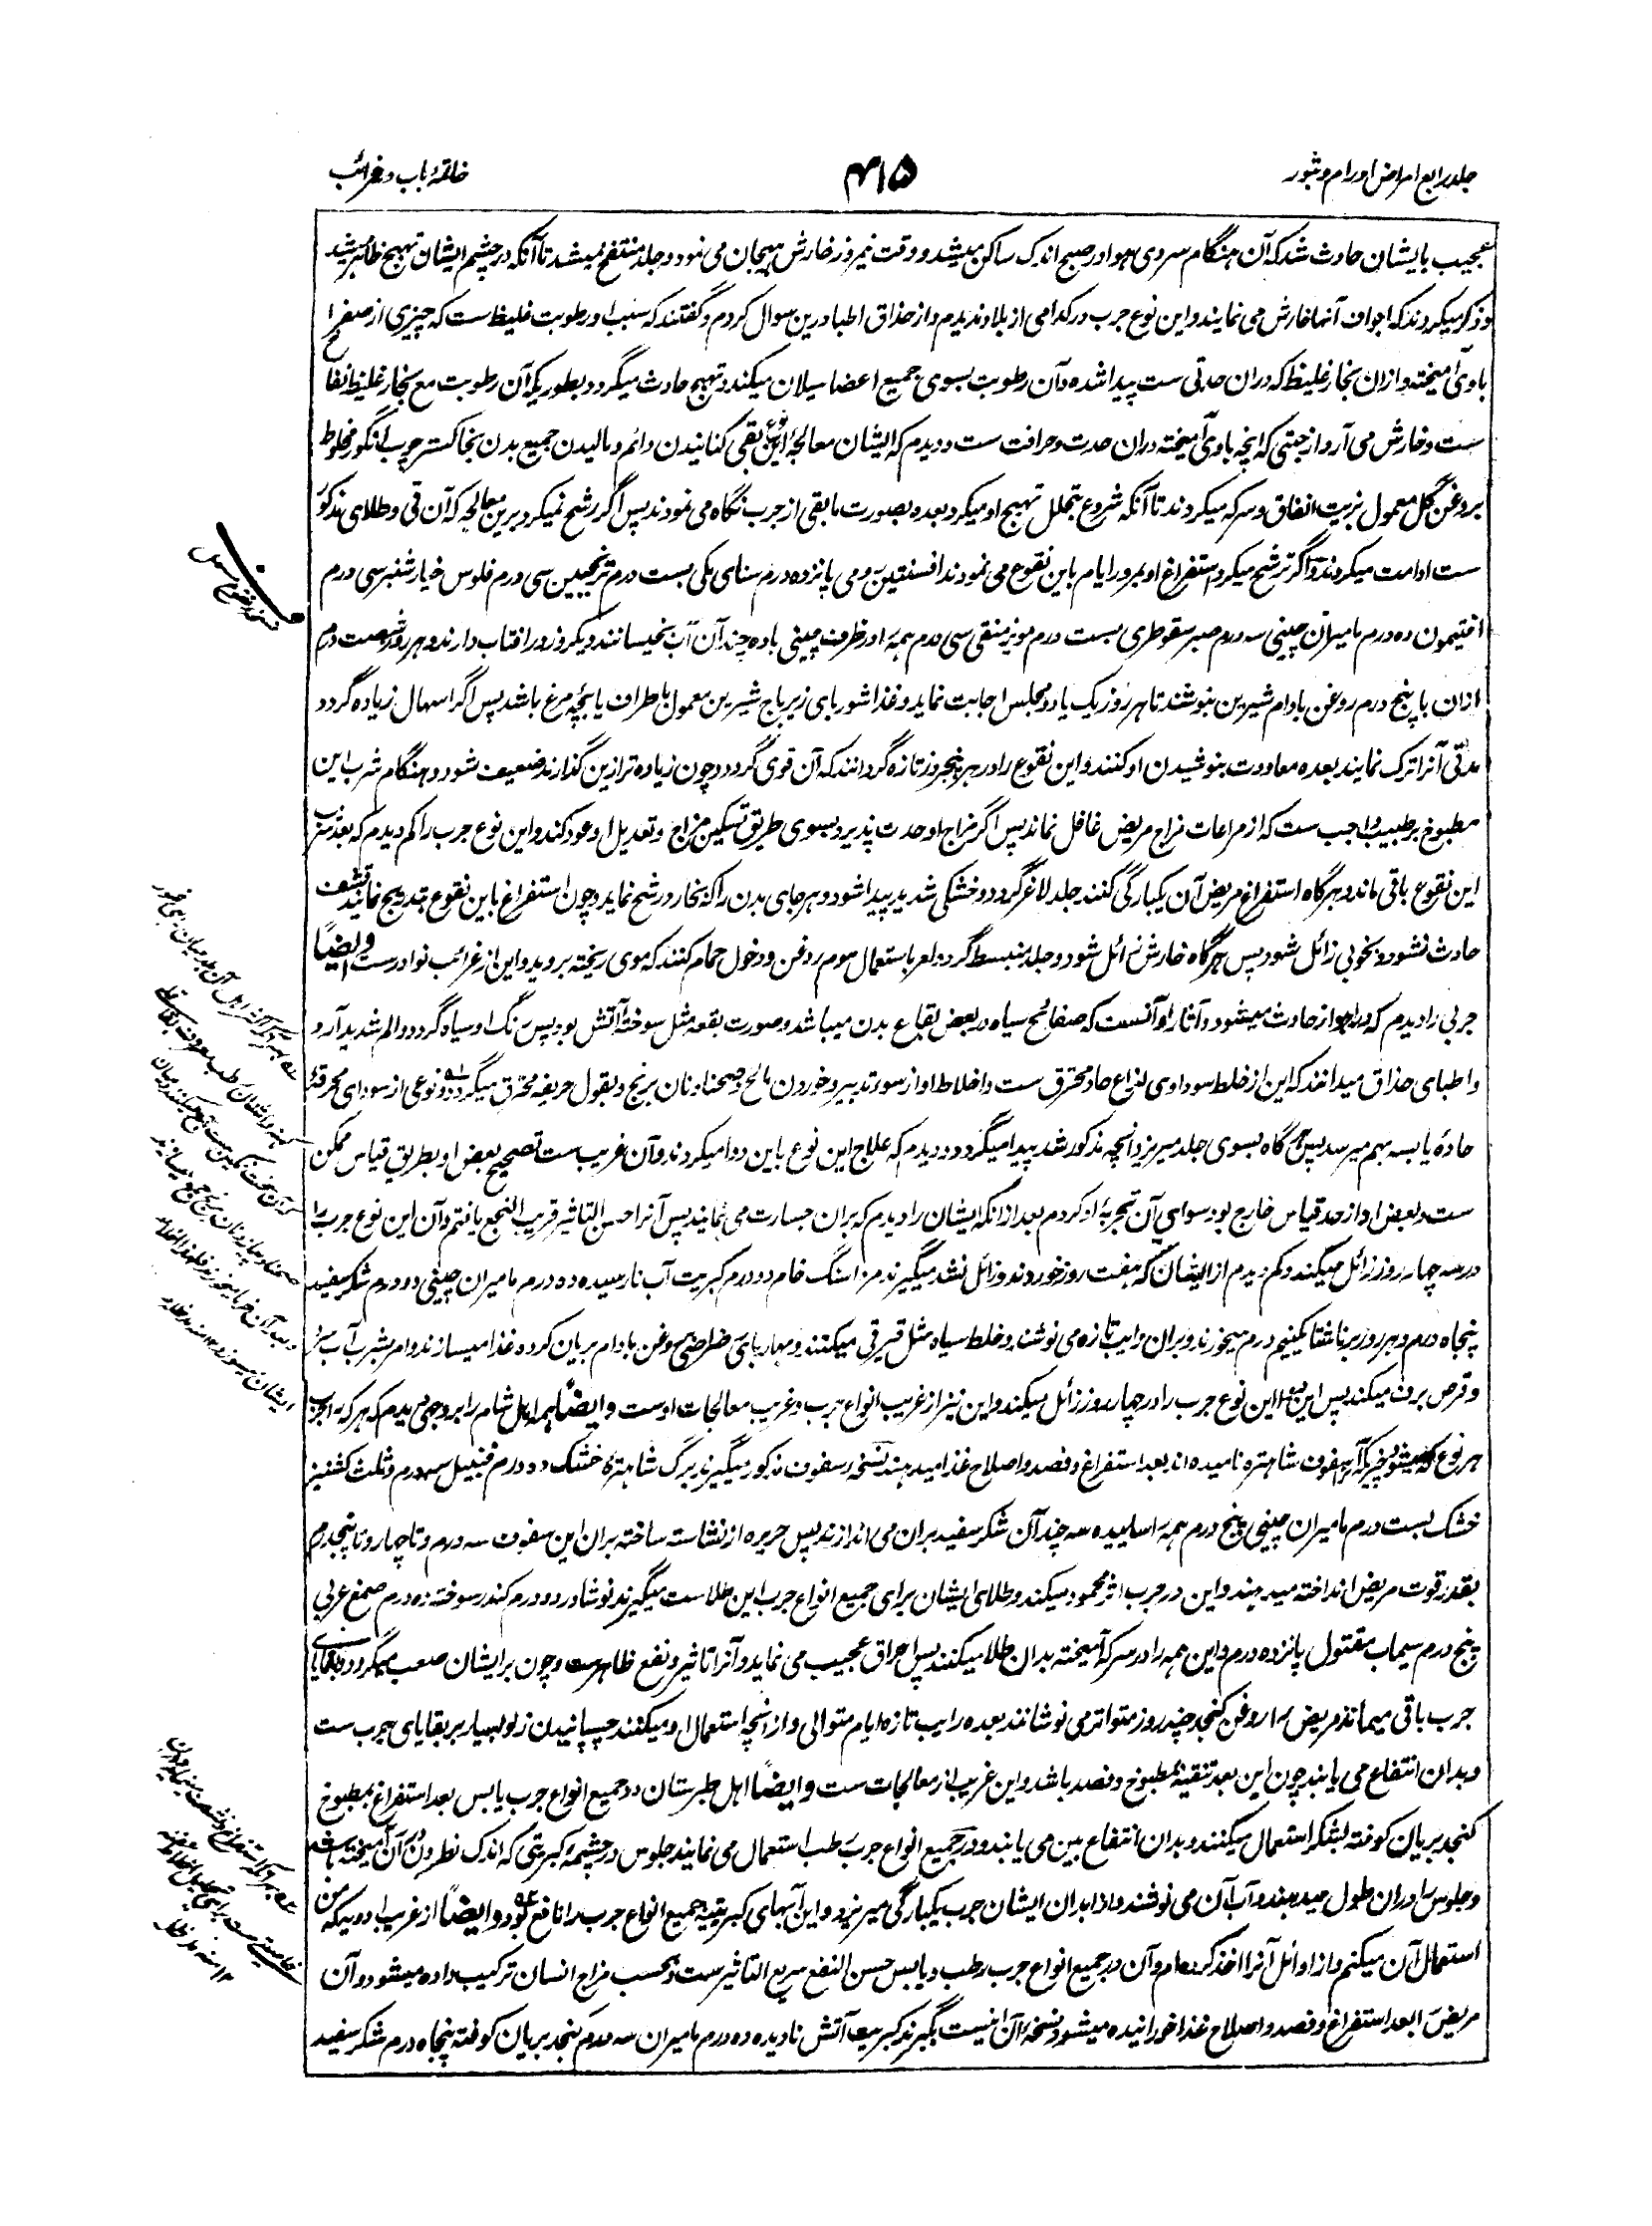 جلد رابع امراض اورام و بثور
۴۱۵
خاتمهٔ باب در غرائب
عجیب بایشان حادث شد که آن هنگام سردی هوا در صبح اندک ساکن میشد و وقت نیمروز خارش هیجان می نمود و جلد منتفخ میشد تا آنکه در چشم ایشان تهیج ظاهر میشد
و ذکر میکردند که اجواف آنها خارش می نمایند و این نوع جرب در کدامی از بلاد ندیدم و از حذاق اطبا درین سوال کردم و گفتند که سبب او رطوبت غلیظ ست که چیزی از صفرا
باوی آمیخته و ازان بخار غلیظ که دران حدتی ست پیدا شده و آن رطوبت بسوی جمیع اعضا سیلان میکند و تهیج حادث میگردد بطوریکه آن رطوبت مع بخار غلیظ نفاخ
ست و خارش می آرد از جهتی که انچه باوی آمیخته دران حدت و حرافت ست و دیدم که ایشان معالجهٔ این نوع بقی کنانیدن دائم و مالیدن جمیع بدن بخاکستر چوب انگور مخلوط
بروغن گل معمول بزیت انفاق و سرکه میکردند تا آنکه شروع بتحلل تهیج او میکرد بعده بصورت مابقی از جرب نگاه می نمودند پس اگر رشح نمیکرد برین معالجه که آن قی و طلای مذکور
ست ادامت میکردند و اگر ترشح میکرد استفراغ او بمرور ایام باین نقوع می نمودند افسنتین رومی پانزده درم سنای مکی بست درم ترنجبین سی درم فلوس خیارشنبر سی درم
افتیمون ده درم مامیران چینی سه درم صبر سقوطری بست درم مویز منقی سی درم همه را در ظرف چینی باده چند آن آب بخیسانند و یکروز در آفتاب دارند و هر روز شصت درم
ازان با پنج درم روغن بادام شیرین بنوشند تا هر روز یک یا دو مجلس اجابت نماید و غذا شوربای زیرباج شیرین معمول باطراف یا بچهٔ مرغ باشد پس اگر اسهال زیاده گردد
مدتی آنرا ترک نمایند بعده معاودت بنوشیدن او کنند و این نقوع را در هر پنجروز تازه گردانند که آن قوی گردد و چون زیاده ترازین گذارند ضعیف شود و هنگام شرب این
مطبوخ بر طبیب واجب ست که از مراعات مزاج مریض غافل نماند پس اگر مزاج او حدت پذیرد بسوی طریق تسکین مزاج و تعدیل او عود کند و این نوع جرب را کم دیدم که بعد شرب
این نقوع باقی ماند و هرگاه استفراغ مریض آن یکبارگی کنند جلد لاغر گردد و خشکی شدید پیدا شود و هر جای بدن را که بخارد رشح نماید و چون استفراغ باین نقوع بتدریج نمایند قشف
حادث نشود و بخوبی زائل شود پس هرگاه خارش زائل شود و جلد منبسط گردد امر باستعمال موم روغن و دخول حمام کنند که موی ریخته بروید و این از غرائب نوادرست و ایضاً
جربی را دیدم که در اهواز حادث میشود و آثار او آنست که صفائح سیاه در بعض بقاع بدن میباشد و صورت بقعه مثل سوختهٔ آتش بود پس رنگ او سیاه گردد و الم شدید آرد
و اطبای حذاق میدانند که این از خلط سوداوی لذاع حاد محترق ست و اخلاط او از سوء تدبیر و خوردن مالح و صحناة و نان برنج و بقول حریفه محترق میگردد و نوعی از سودای محرقهٔ
حادهٔ یابسه بهم میرسد پس هرگاه بسوی جلد میریزد انچه مذکور شد پیدا میگردد و دیدم که علاج این نوع باین دوا میکردند و آن غریب ست تصحیح بعض او بطریق قیاس ممکن
ست و بعض او از حد قیاس خارج بود سوای آن تجربهٔ او کردم بعد ازانکه ایشان را دیدم که بران جسارت می نمایند پس آنرا حسن التاثیر قریب النجع یافتم و آن این نوع جرب را
در سه چهار روز زائل میکند و کم دیدم از ایشان که هفت روز خوردند و زائل نشد میگیرند مرداسنگ خام دو درم کبریت آب نارسیده ده درم مامیران چینی دو درم شکر سفید
پنجاه درم و هر روز بر ناشتا یکنیم درم میخورند و بران رایب تازه می نوشند و خلط سیاه مثل قیر قی میکنند
و قرص برف میکند پس این دوا این نوع جرب را در چهار روز زائل میکند و این نیز از غریب انواع جرب و غریب معالجات اوست و ایضاً اهل شام را بروجهی دیدم که هرکه را جرب
هر نوع که میشود چیزیکه آنرا سفوف شاهتره نامیده اند بعد استفراغ و فصد و اصلاح غذا میدهند نسخهٔ سفوف مذکور میگیرند برگ شاهترهٔ خشک ده درم قنبیل سه درم و ثلث کشنیز
خشک بست درم مامیران چینی پنج درم همه را سائیده سه چند آن شکر سفید بران می اندازند پس حریره از نشاسته ساخته بران این سفوف سه درم و تا چهار و تا پنجدرم
بقدر قوت مریض انداخته میدهند و این در جرب اثر محمود میکند و طلای ایشان برای جمیع انواع جرب این طلا ست میگیرند نوشادر دو درم کندر سوخته ده درم صمغ عربی
پنج درم سیماب مقتول پانزده درم و این همه را در سرکه آمیخته بدان طلا میکنند پس احراق عجیب می نماید و آنرا تاثیر و نفع ظاهرست و چون بر ایشان صعب میگردد و بقایای
جرب باقی میماند مریض را روغن کنجد چند روز متواتر می نوشانند بعده رایب تازه ایام متوالی و از انچه استعمال او میکنند چسپانیدن زلو بسیار بر بقایای جرب ست
و بدان انتفاع می یابند چون این بعد تنقیه بمطبوخ و فصد باشد و این غریب از معالجات ست و ایضاً اهل طبرستان در جمیع انواع جرب یابس بعد استفراغ بمطبوخ
کنجد بریان کوفته بشکر استعمال میکنند و بدان انتفاع بین می یابند و در جمیع انواع جرب رطب استعمال می نمایند جلوس در چشمهٔ کبریتی که اندک نطرون در آن آمیخته باشد
و جلوس را دران طول میدهند و آب آن می نوشند و از ابدان ایشان جرب یکبارگی میریزد و این آبهای کبریتیه جمیع انواع جرب را نافع بود و ایضاً از غریب ادویه که من
استعمال آن میکنم و از اوائل آنرا اخذ کرده ام و آن در جمیع انواع جرب رطب و یابس حسن النفع سریع التاثیرست و بحسب مزاج انسان ترکیب داده میشود و آن
مریض را بعد استفراغ و فصد و اصلاح غذا خورانیده میشود و نسخهٔ آن اینست بگیرند کبریت آتش نادیده ده درم مامیران سه درم کنجد بریان کوفته پنجاه درم شکر سفید
نسخهٔ نقوع مسهل